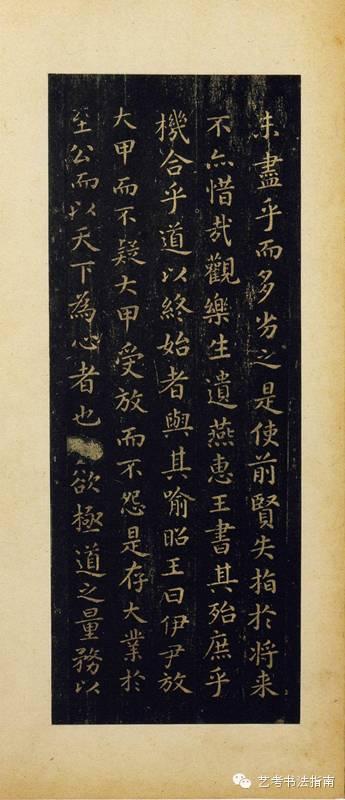 未盡乎而多劣之是使前賢失指於将来
不亦惜哉觀樂生遺燕惠王書其殆庶乎
機合乎道以終始者與其喻昭王曰伊尹放
大甲而不疑大甲受放而不怨是存大業於
至公而以天下為心者也欲極道之量務以
艺考书法指南